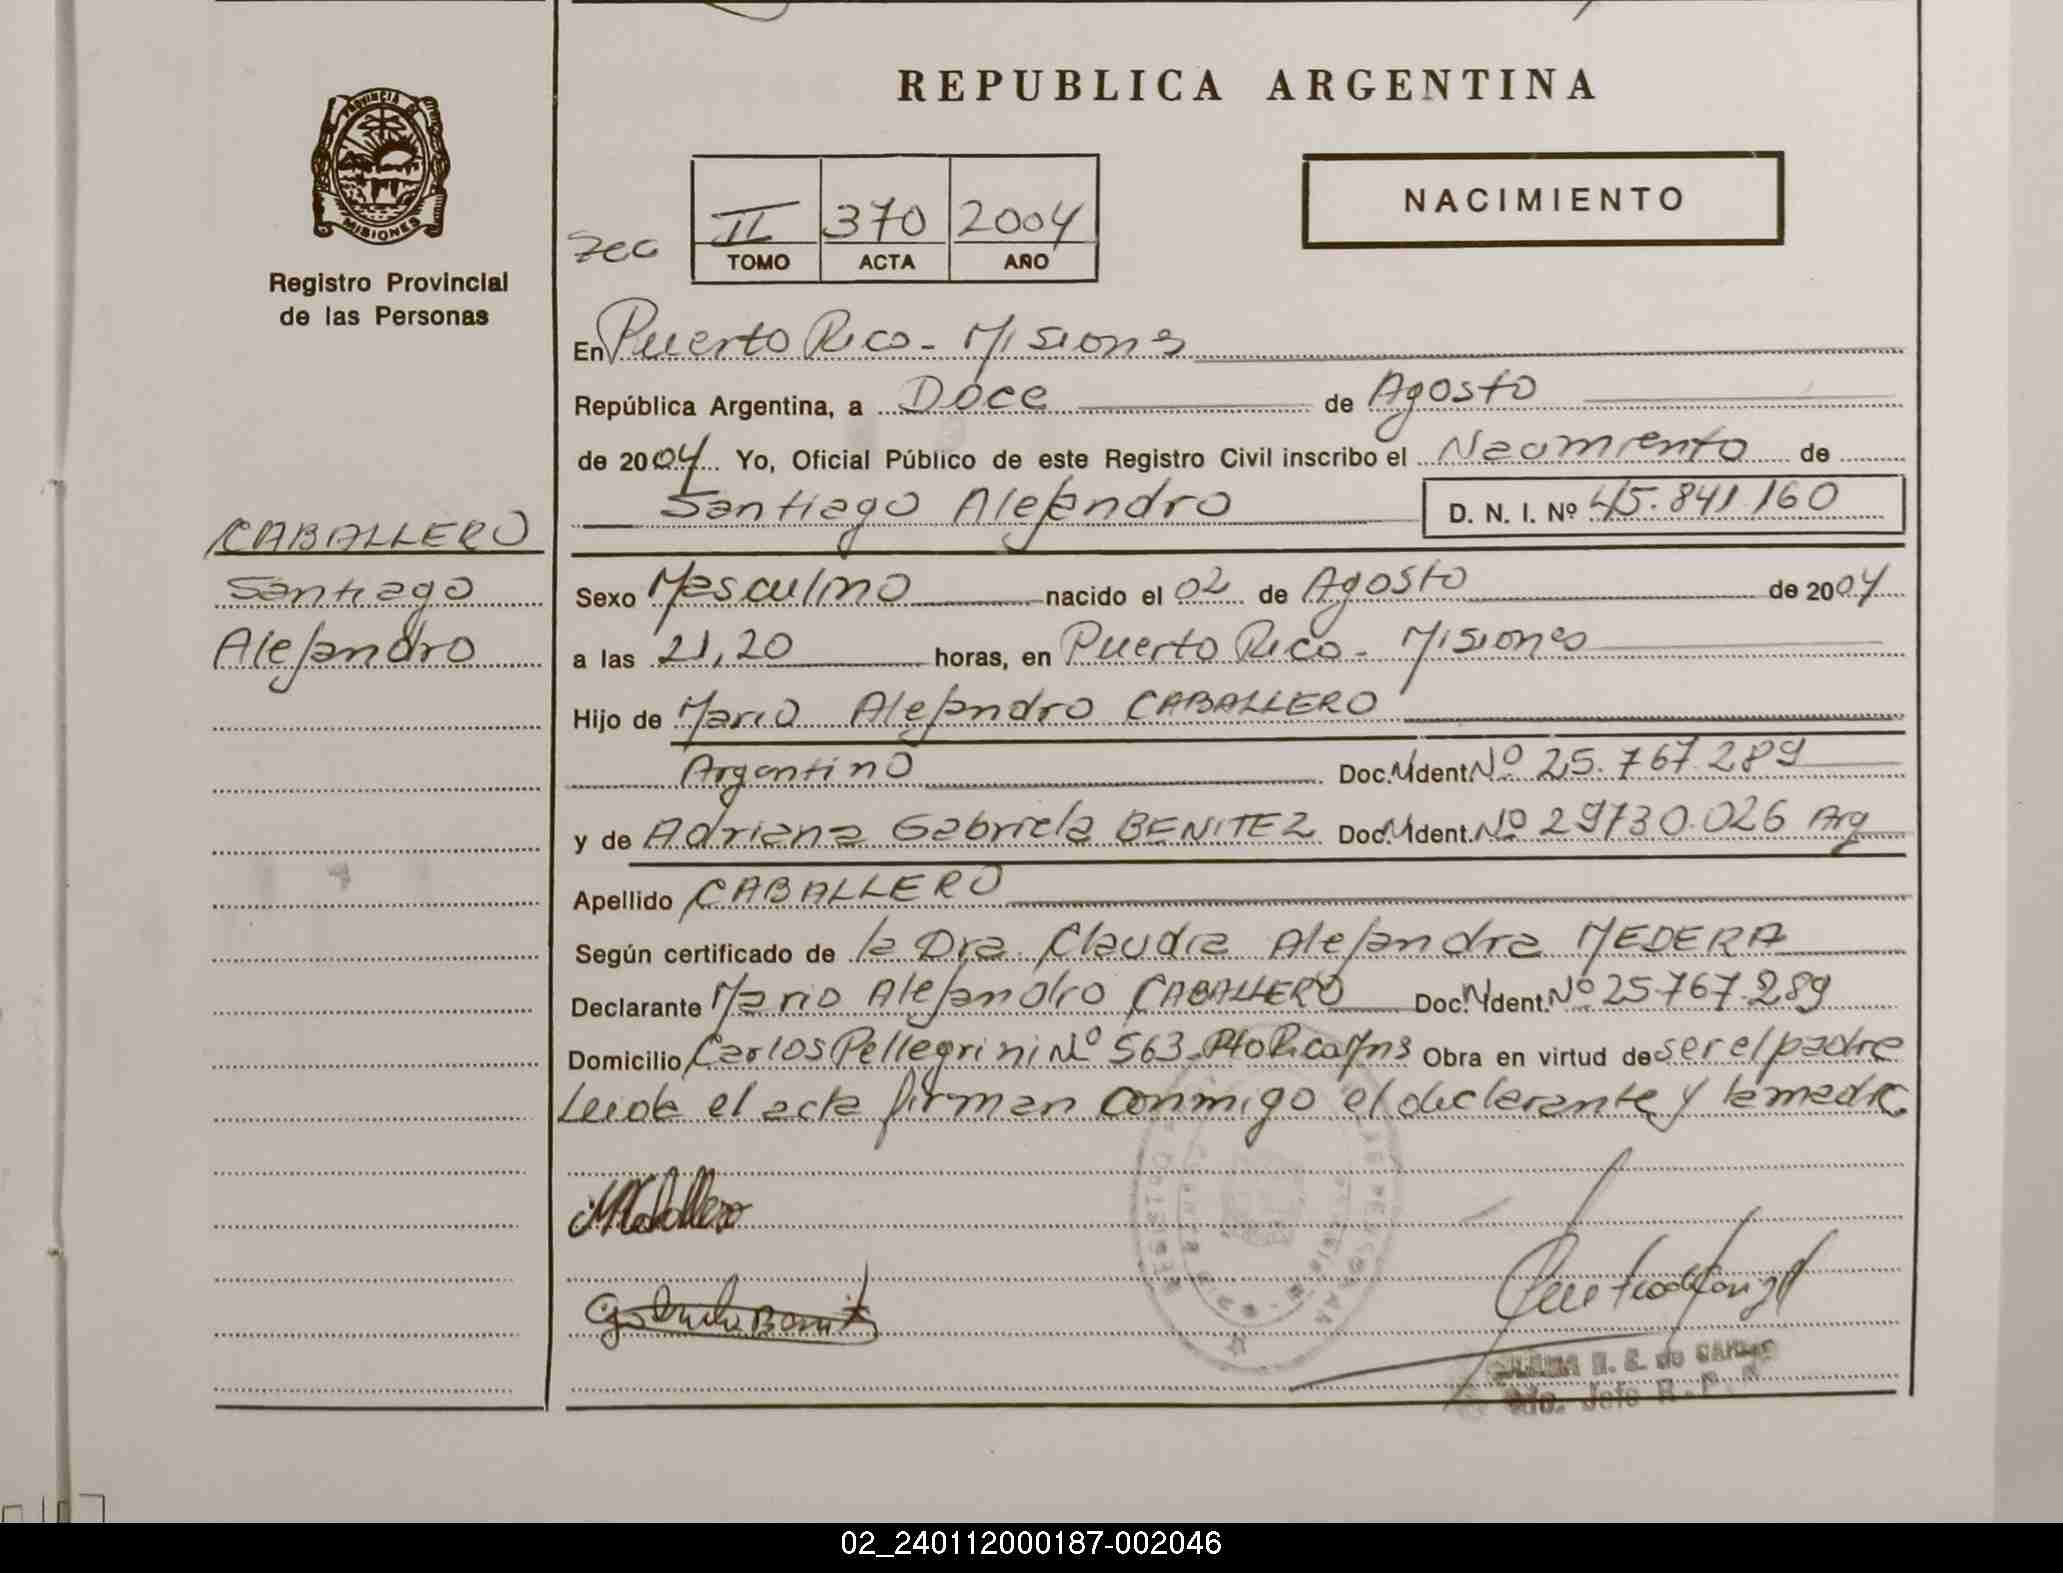 REPUBLICA ARGENTINA
PROVINCIA DE
MISIONES
Registro Provincial
de las Personas
NACIMIENTO
II 370 2004
TOMO ACTA AÑO
En Puerto Rico - Misiones
República Argentina, a Doce de Agosto
de 2004 Yo, Oficial Público de este Registro Civil inscribo el Nacimiento de
Santiago Alejandro D. N. I. Nº 45.841.160
CABALLERO
Santiago
Alejandro
Sexo Masculino nacido el 02 de Agosto de 2004
a las 21,20 horas, en Puerto Rico - Misiones
Hijo de Mario Alejandro CABALLERO
Argentino Doc. Ident. Nº 25.767.289
y de Adriana Gabriela BENITEZ Doc. Ident. Nº 29730.026 Arg
Apellido CABALLERO
Según certificado de la Dra. Claudia Alejandra MEDERA
Declarante Mario Alejandro CABALLERO Doc. Ident. Nº 25767.289
Domicilio Carlos Pellegrini Nº 563 - Pto Rico Mns Obra en virtud de ser el padre
Leida el acta firman conmigo el declarante y la madre
MCaballero
Gabriela Benitez
Jefe R. P.
02_240112000187-002046